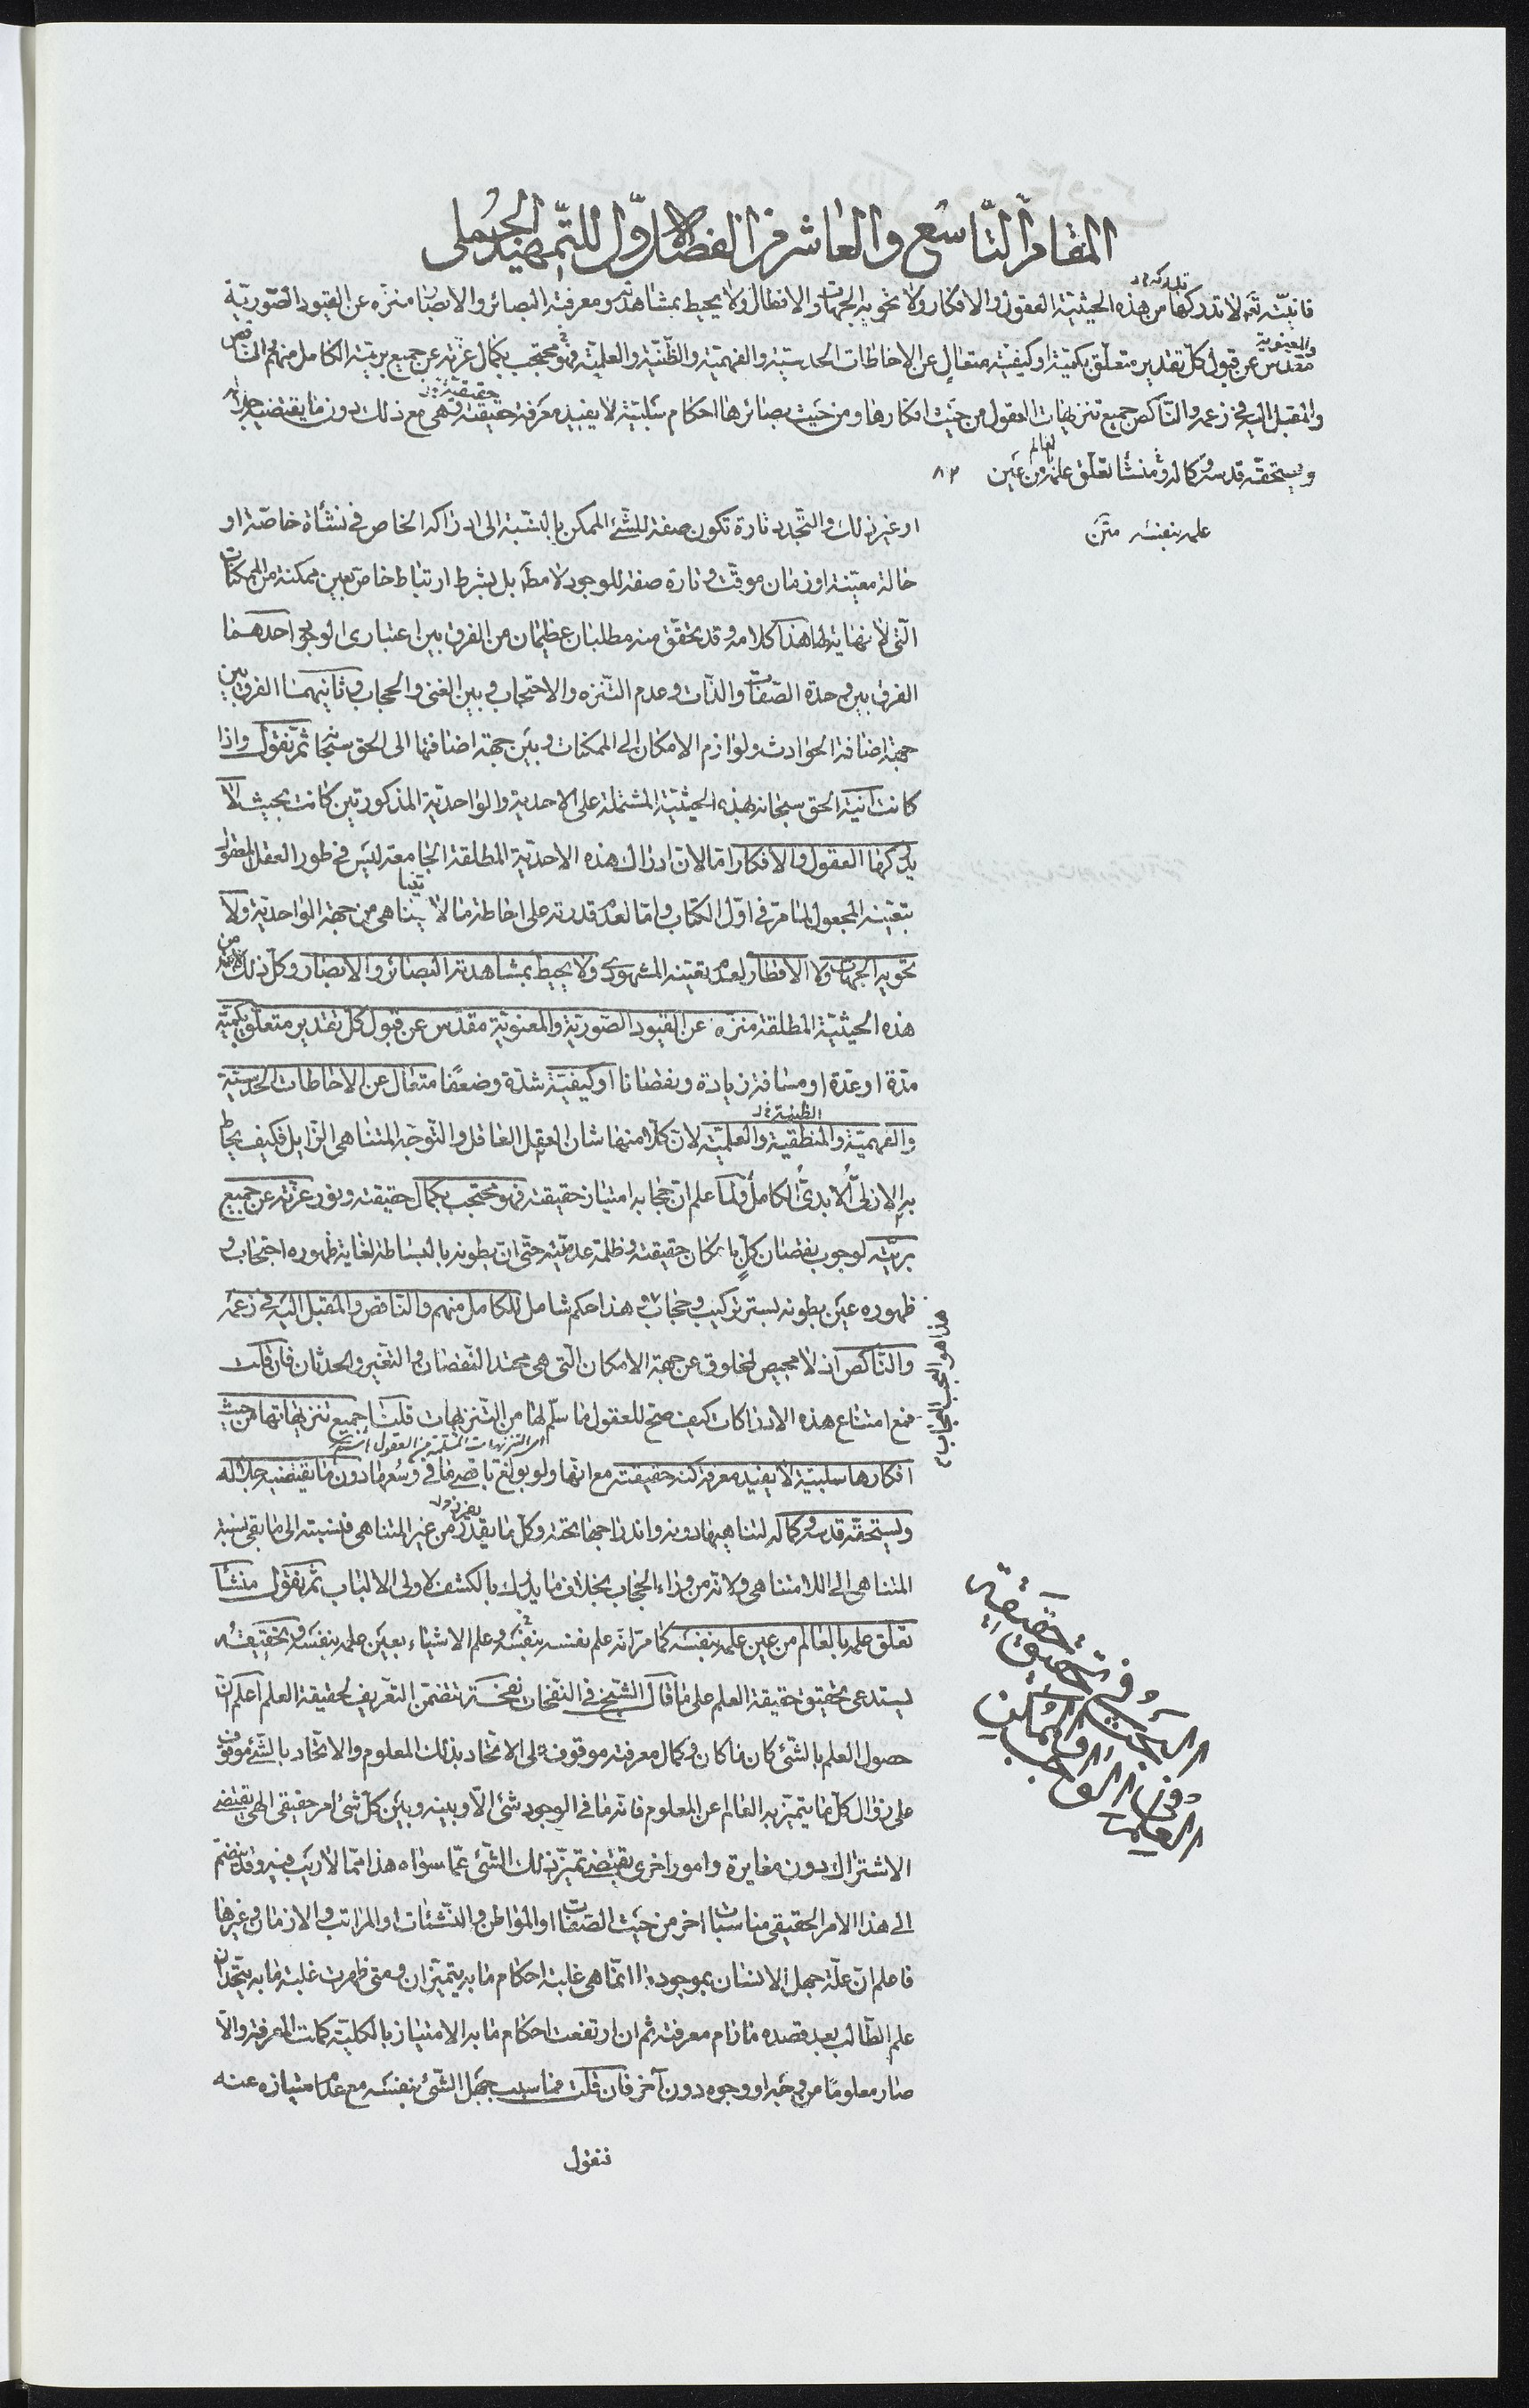 المقام التاسع والعاشر من الفصل الاول للتمهيد الجملى
فانيته تعه لا تدركها من هذه الحيثية العقول والافكار ولا تحويه الجهات والاقطار ولا يحيط بمشاهدته ومعرفته البصائر والابصار منزه عن القيود الصورية
والمعنوية
مقدس عن قبول كل تقدير متعلق بكمية او كيفية متعال عن الاحاطات الحدسية والفهمية والظنية والعلمية فهو محتجب بكمال عزته عن جميع بريته الكامل منهم والناقص
والمقبل اليه فى زعمه والناكص جميع تنزيهات العقول من حيث افكارها ومن حيث بصائرها احكام سلبية لا يفيد معرفة حقيقته وهى مع ذلك دون ما يقتضيه جلاله
ويستحقه قدسه وكماله ومنشأ تعلق علمه بالعالم من عين ٨٢
علمه بنفسه متن
او غير ذلك والتجدد تارة تكون صفة للشئ الممكن بالنسبة الى ادراكه الخاص فى نشأة خاصة او
حالة معينة او زمان موقت وتارة صفة للوجود لا مط بل بشرط ارتباط خاص بعين ممكنة من الممكنات
التى لا نهاية لها هذا كلامه وقد تحقق منه مطلبان عظيمان من الفرق بين اعتبارى الوجود احدهما
الفرق بين وحدة الصفات والذات وعدم التنزه والاحتجاب وبين الغنى والحجاب وثانيهما الفرق بين
جهة اضافة الحوادث ولوازم الامكان الى الممكنات وبين جهة اضافتها الى الحق سبحانه ثم نقول واذا
كانت انية الحق سبحانه بهذه الحيثية المشتملة على الاحدية والواحدية المذكورتين كانت بحيث لا
يدركها العقول والافكار اما لان ادراك هذه الاحدية المطلقة الجامعة ليس فى طور العقل المعقول
بتعينه المجعول لما مر فى اول الكتاب واما لعدم قدرته على احاطة ما لا يتناهى من جهة الواحدية ولا
تحويه الجهات ولا الاقطار لعدم تعينه المشهودى ولا يحيط بمشاهدته البصائر والابصار وكل ذلك لانه من
هذه الحيثية المطلقة منزه عن القيود الصورية والمعنوية مقدس عن قبول كل تقدير متعلق بكمية
مدة او عدة او مسافة زيادة ونقصانا او كيفية شدة وضعفا متعال عن الاحاطات الحدسية
والفهمية والمنطقية والعلمية لان كلا منها شان العقل الغافل والتوجه المتناهى الزايل فكيف يحاط
به الازلى الابدى الكامل ولما علم ان حجابه امتياز حقيقته فهو محتجب بكمال حقيقته ونور عزته عن جميع
بريته لوجوب نقصان كل بامكان حقيقته وظلمة عدميته حتى ان بطونه بالبساطة لغاية ظهوره احتجاب و
ظهوره عين بطونه بستر تركيب وحجاب وهذا حكم شامل للكامل منهم والناقص والمقبل اليه فى زعمه
والناكص اذ لا محيص لمخلوق عن جهة الامكان التى هى محتد النقصان والتغير والحدثان فان قلت
فمع امتناع هذه الادراكات كيف صح للعقول ما سلم لها من التنزيهات قلت جميع تنزيهاتها من حيث
افكارها سلبية لا يفيد معرفة كنه حقيقته مع انها ولو بولغ باقصى ما فى وسعها دون ما يقتضيه جلاله
ويستحقه قدسه وكماله لتناهيها دونه واندراجها تحته وكل ما يقدر من غير المتناهى فنسبته الى ما بقى نسبة
المتناهى الى اللامتناهى ولانه من وراء الحجاب بخلاف ما يدرك بالكشف لاولى الالباب ثم نقول منشأ
تعلق علمه بالعالم من عين علمه بنفسه كما مر انه علم نفسه بنفسه وعلم الاشياء بعين علمه بنفسه وتحقيقه
يستدعى تحقيق حقيقة العلم على ما قال الشيخ فى النفحات نفحة تتضمن التعريف لحقيقة العلم اعلم ان
حصول العلم بالشئ كان ما كان وكمال معرفته موقوف على الاتحاد بذلك المعلوم والاتحاد بالشئ موقوف
على زوال كل ما يتميز به العالم عن المعلوم فانه ما فى الوجود شئ الا وبينه وبين كل شئ امر حقيقى الهى يقتضى
الاشتراك دون مغايرة وامور اخرى يقتضى تميز ذلك الشئ عما سواه هذا مما لا ريب فيه وقد ينضم
الى هذا الامر الحقيقى مناسبات اخر من حيث الصفات او المواطن والنشئات او المراتب والازمان وغيرها
فاعلم ان علة جهل الانسان بموجود ما انما هى غلبة احكام ما به يتميزان ومتى ظهرت غلبة ما به يتحدان
علم الطالب بعد قصده ما رام معرفته ثم ان ارتفعت احكام ما به الامتياز بالكلية كملت المعرفة والا
صار معلوما من وجه او وجوه دون آخر فان قلت فما سبب جهل الشئ بنفسه مع عدم امتيازه عنه
فنقول
هذا هو
البحث فى تحقيق حقيقة